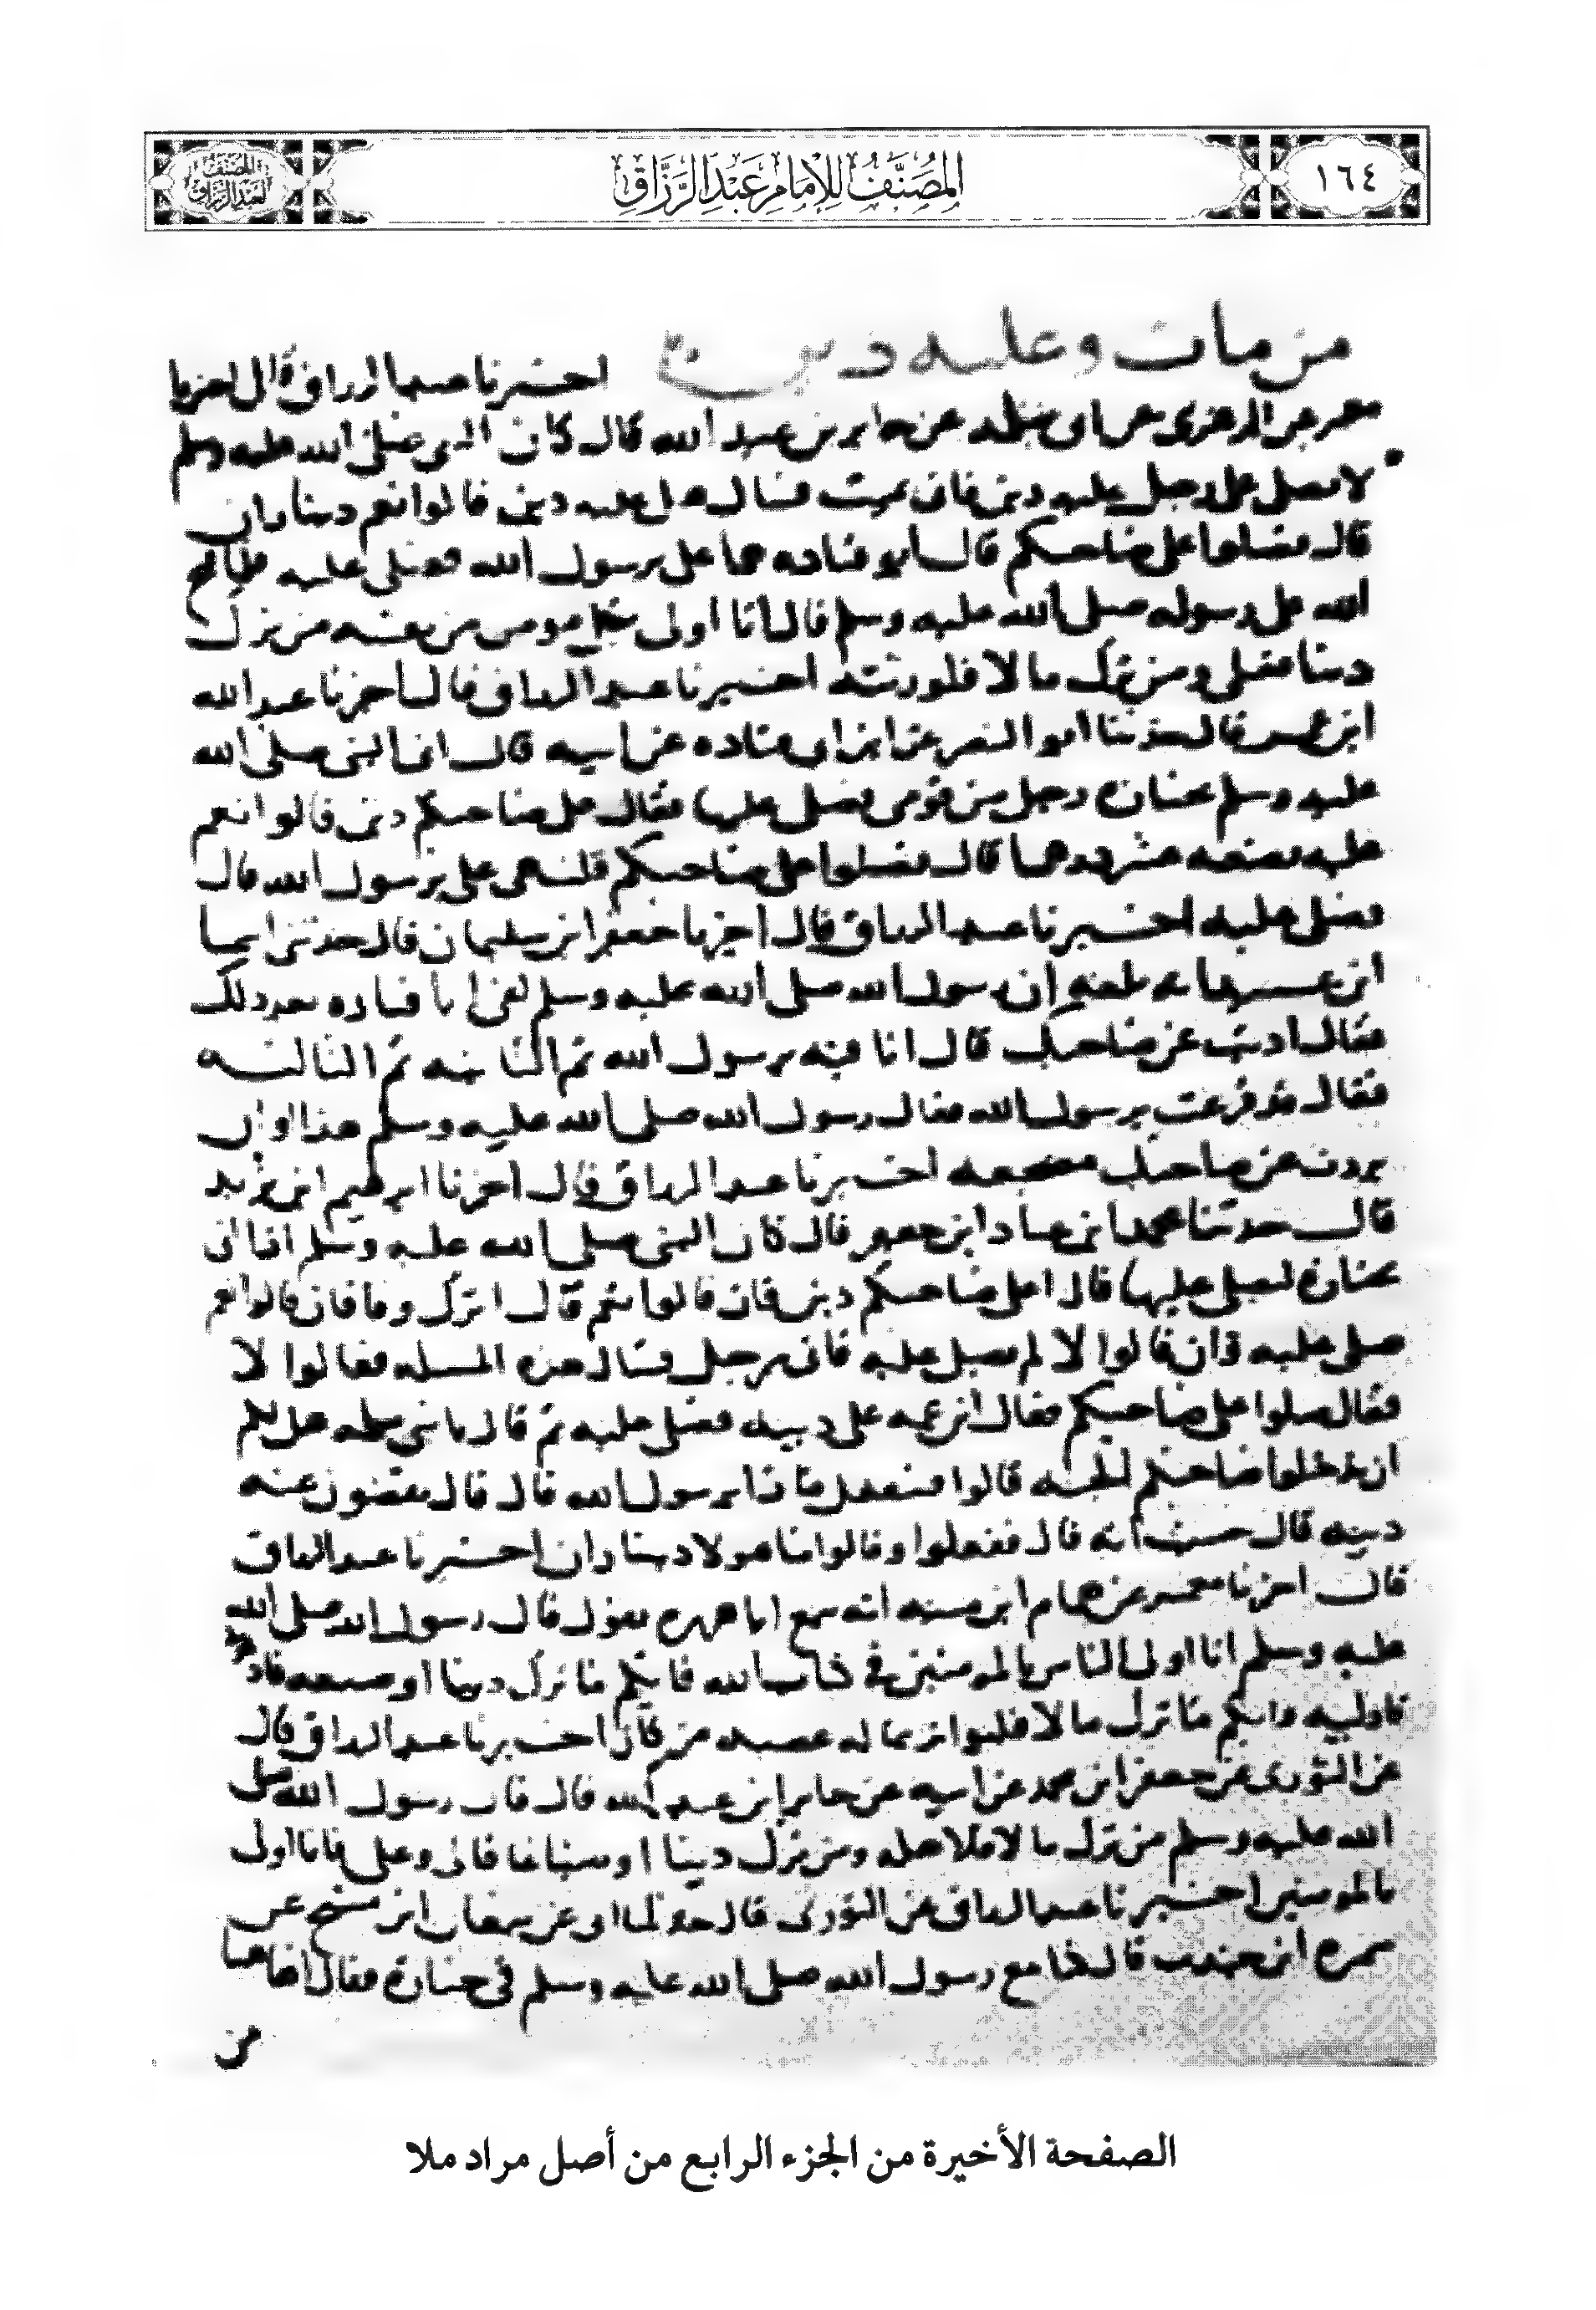 ١٦٤
المُصَنَّفُ لِلإِمَامِ عَبْدِ الرَّزَّاقِ
المصنف لعبد الرزاق
من مات وعليه دين اخبرنا عبد الرزاق قال اخبرنا
معمر عن الزهري عن ابى سلمه عن جابر بن عبد الله قال كان النبى صلى الله عليه وسلم
لا يصلى على رجل عليه دين فاتى بميت فسال هل عليه دين قالوا نعم ديناران
قال فصلوا على صاحبكم قال ابو قتاده هما على يرسول الله فصلى عليه فلما فتح
الله على رسوله صلى الله عليه وسلم قال انا اولى بكل مومن من نفسه من ترك
دينا فعلي ومن ترك مالا فلورثته اخبرنا عبد الرزاق قال اخبرنا عبد الله
ابن عمر قال حدثنا ابو النضر عن ابن ابى قتاده عن ابيه قال اتى النبى صلى الله
عليه وسلم بجنازة رجل من قومى يصلى عليها فقال هل على صاحبكم دين قالوا نعم
عليه بضعه عشر درهما قال فصلوا على صاحبكم قلت هى على يرسول الله قال
فصلى عليه اخبرنا عبد الرزاق قال اخبرنا جعفر ابن سليمان قال حدثنى
ان رسول الله صلى الله عليه وسلم لقى ابا قتاده بعد ذلك
فقال اديت عن صاحبك قال انا فيه يرسول الله ثم الثانيه ثم الثالثه
فقال قد فرغت يرسول الله فقال رسول الله صلى الله عليه وسلم هذا اوان
بردت عن صاحبك مضجعه اخبرنا عبد الرزاق قال اخبرنا ابرهيم ابن يزيد
قال حدثنا محمد ابن عباد ابن جعفر قال كان النبى صلى الله عليه وسلم اذا اتى
بجنازه ليصلى عليها قال اعلى صاحبكم دين فان قالوا نعم قال اترك وفا فان قالوا نعم
صلى عليه وان قالوا لا لم يصل عليه فاتى برجل فسال هذه المسله فقالوا لا
فقال صلوا على صاحبكم فقال ابن عمه على دينه فصلى عليه ثم قال يا بنى سلمه هل لكم
ان تدخلوا صاحبكم الجنه قالوا فنفعل ماذا يرسول الله قال قال تقضون عنه
دينه قال حسبت انه قال ففعلوا وقالوا ما هو الا ديناران اخبرنا عبد الرزاق
قال اخبرنا معمر عن همام ابن منبه انه سمع ابا هريره يقول قال رسول الله صلى الله
عليه وسلم انا اولى الناس بالمومنين فى كتاب الله فايكم ما ترك دينا او ضيعه فادعونى
فاوليه وايكم ما ترك مالا فليواثر بماله عصبه من كان اخبرنا عبد الرزاق قال
عن الثورى عن جعفر ابن محمد عن ابيه عن جابر ابن عبد الله قال قال رسول الله صلى
الله عليه وسلم من ترك مالا فلاهله ومن ترك دينا او ضياعا فالى وعلى فانا اولى
بالمومنين اخبرنا عبد الرزاق عن الثورى قال حدثنا ابى عن سمعان ابن مشنج عن
سمره ابن جندب قال كنا مع رسول الله صلى الله عليه وسلم فى جنازة فقال اهاهنا
من
الصفحة الأخيرة من الجزء الرابع من أصل مراد ملا